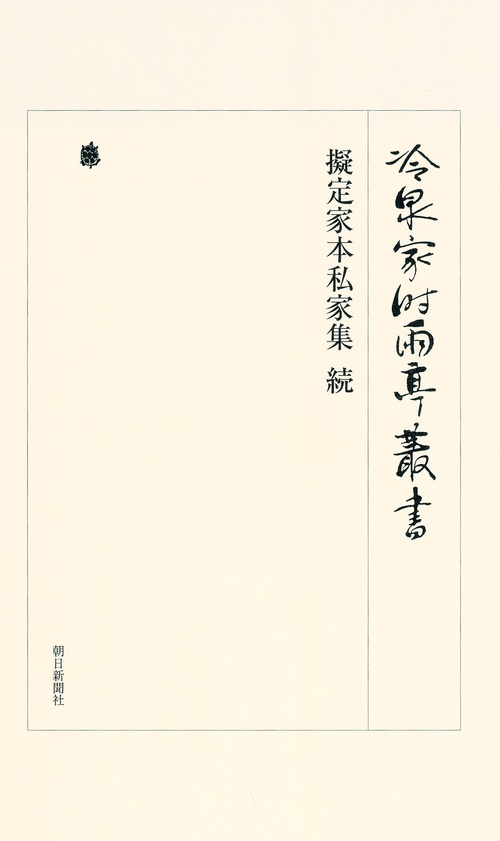 冷泉家时雨亭叢書
擬定家本私家集 続
朝日新聞社